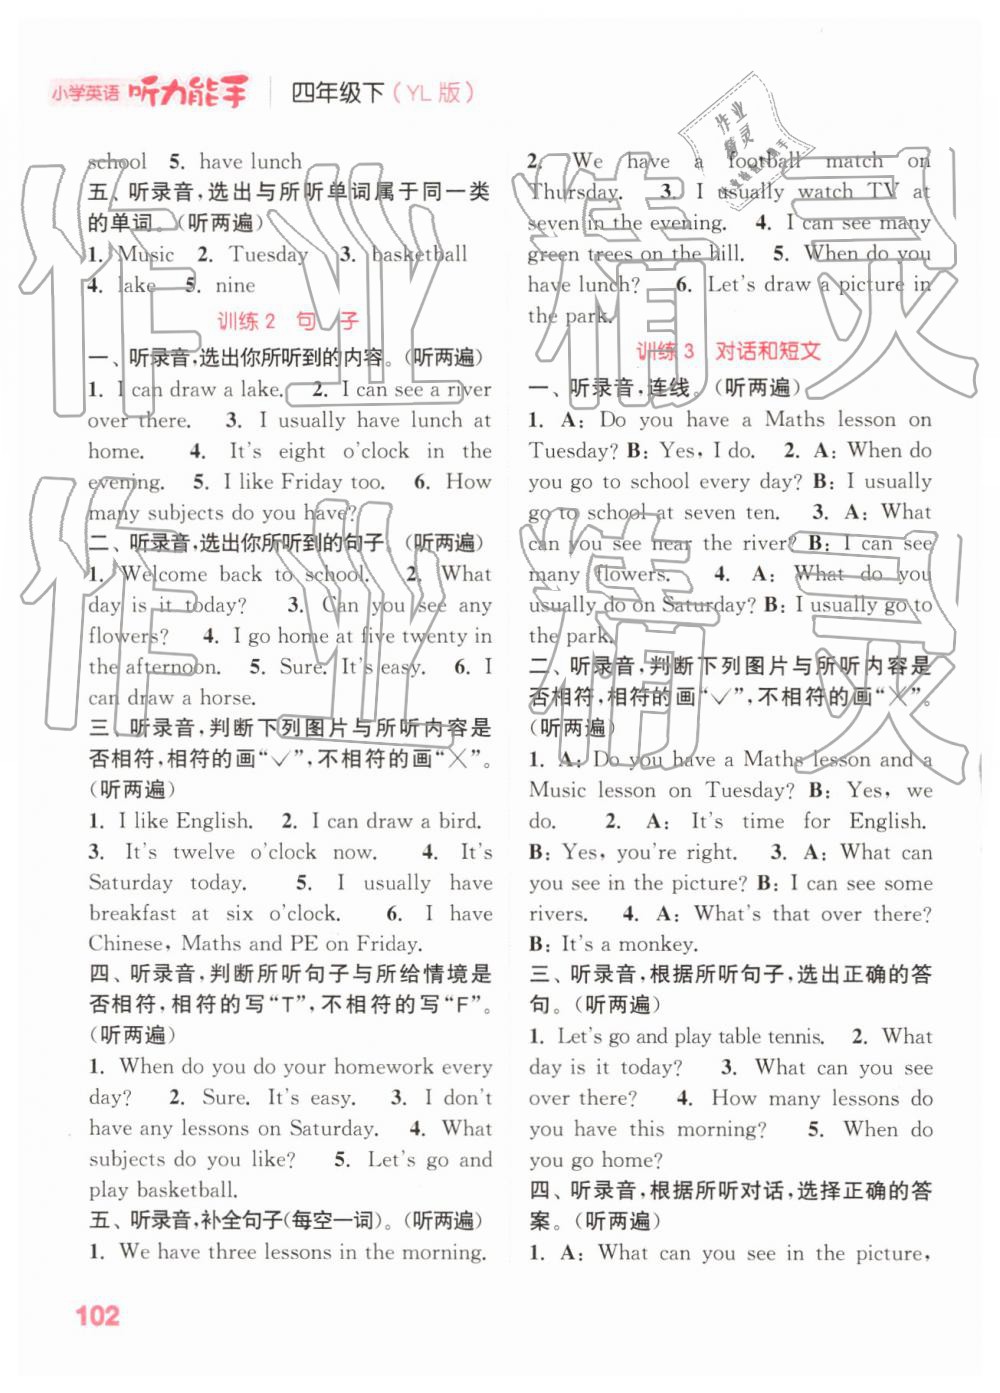 小学英语 听力能手 四年级下(YL版)
school 5. have lunch
五、听录音,选出与所听单词属于同一类
的单词。(听两遍)
1. Music 2. Tuesday 3. basketball
4. lake 5. nine
训练2 句 子
一、听录音,选出你所听到的内容。(听两遍)
1. I can draw a lake. 2. I can see a river
over there. 3. I usually have lunch at
home. 4. It's eight o'clock in the
evening. 5. I like Friday too. 6. How
many subjects do you have?
二、听录音,选出你所听到的句子。(听两遍)
1. Welcome back to school. 2. What
day is it today? 3. Can you see any
flowers? 4. I go home at five twenty in
the afternoon. 5. Sure. It's easy. 6. I
can draw a horse.
三、听录音,判断下列图片与所听内容是
否相符,相符的画“√”,不相符的画“×”。
(听两遍)
1. I like English. 2. I can draw a bird.
3. It's twelve o'clock now. 4. It's
Saturday today. 5. I usually have
breakfast at six o'clock. 6. I have
Chinese, Maths and PE on Friday.
四、听录音,判断所听句子与所给情境是
否相符,相符的写“T”,不相符的写“F”。
(听两遍)
1. When do you do your homework every
day? 2. Sure. It's easy. 3. I don't
have any lessons on Saturday. 4. What
subjects do you like? 5. Let's go and
play basketball.
五、听录音,补全句子(每空一词)。(听两遍)
1. We have three lessons in the morning.
2. We have a football match on
Thursday. 3. I usually watch TV at
seven in the evening. 4. I can see many
green trees on the hill. 5. When do you
have lunch? 6. Let's draw a picture in
the park.
训练3 对话和短文
一、听录音,连线。(听两遍)
1. A: Do you have a Maths lesson on
Tuesday? B: Yes, I do. 2. A: When do
you go to school every day? B: I usually
go to school at seven ten. 3. A: What
can you see near the river? B: I can see
many flowers. 4. A: What do you
usually do on Saturday? B: I usually go to
the park.
二、听录音,判断下列图片与所听内容是
否相符,相符的画“√”,不相符的画“×”。
(听两遍)
1. A: Do you have a Maths lesson and a
Music lesson on Tuesday? B: Yes, we
do. 2. A: It's time for English.
B: Yes, you're right. 3. A: What can
you see in the picture? B: I can see some
rivers. 4. A: What's that over there?
B: It's a monkey.
三、听录音,根据所听句子,选出正确的答
句。(听两遍)
1. Let's go and play table tennis. 2. What
day is it today? 3. What can you see
over there? 4. How many lessons do
you have this morning? 5. When do
you go home?
四、听录音,根据所听对话,选择正确的答
案。(听两遍)
1. A: What can you see in the picture,
102
作业精灵
作业精灵
作业
精灵